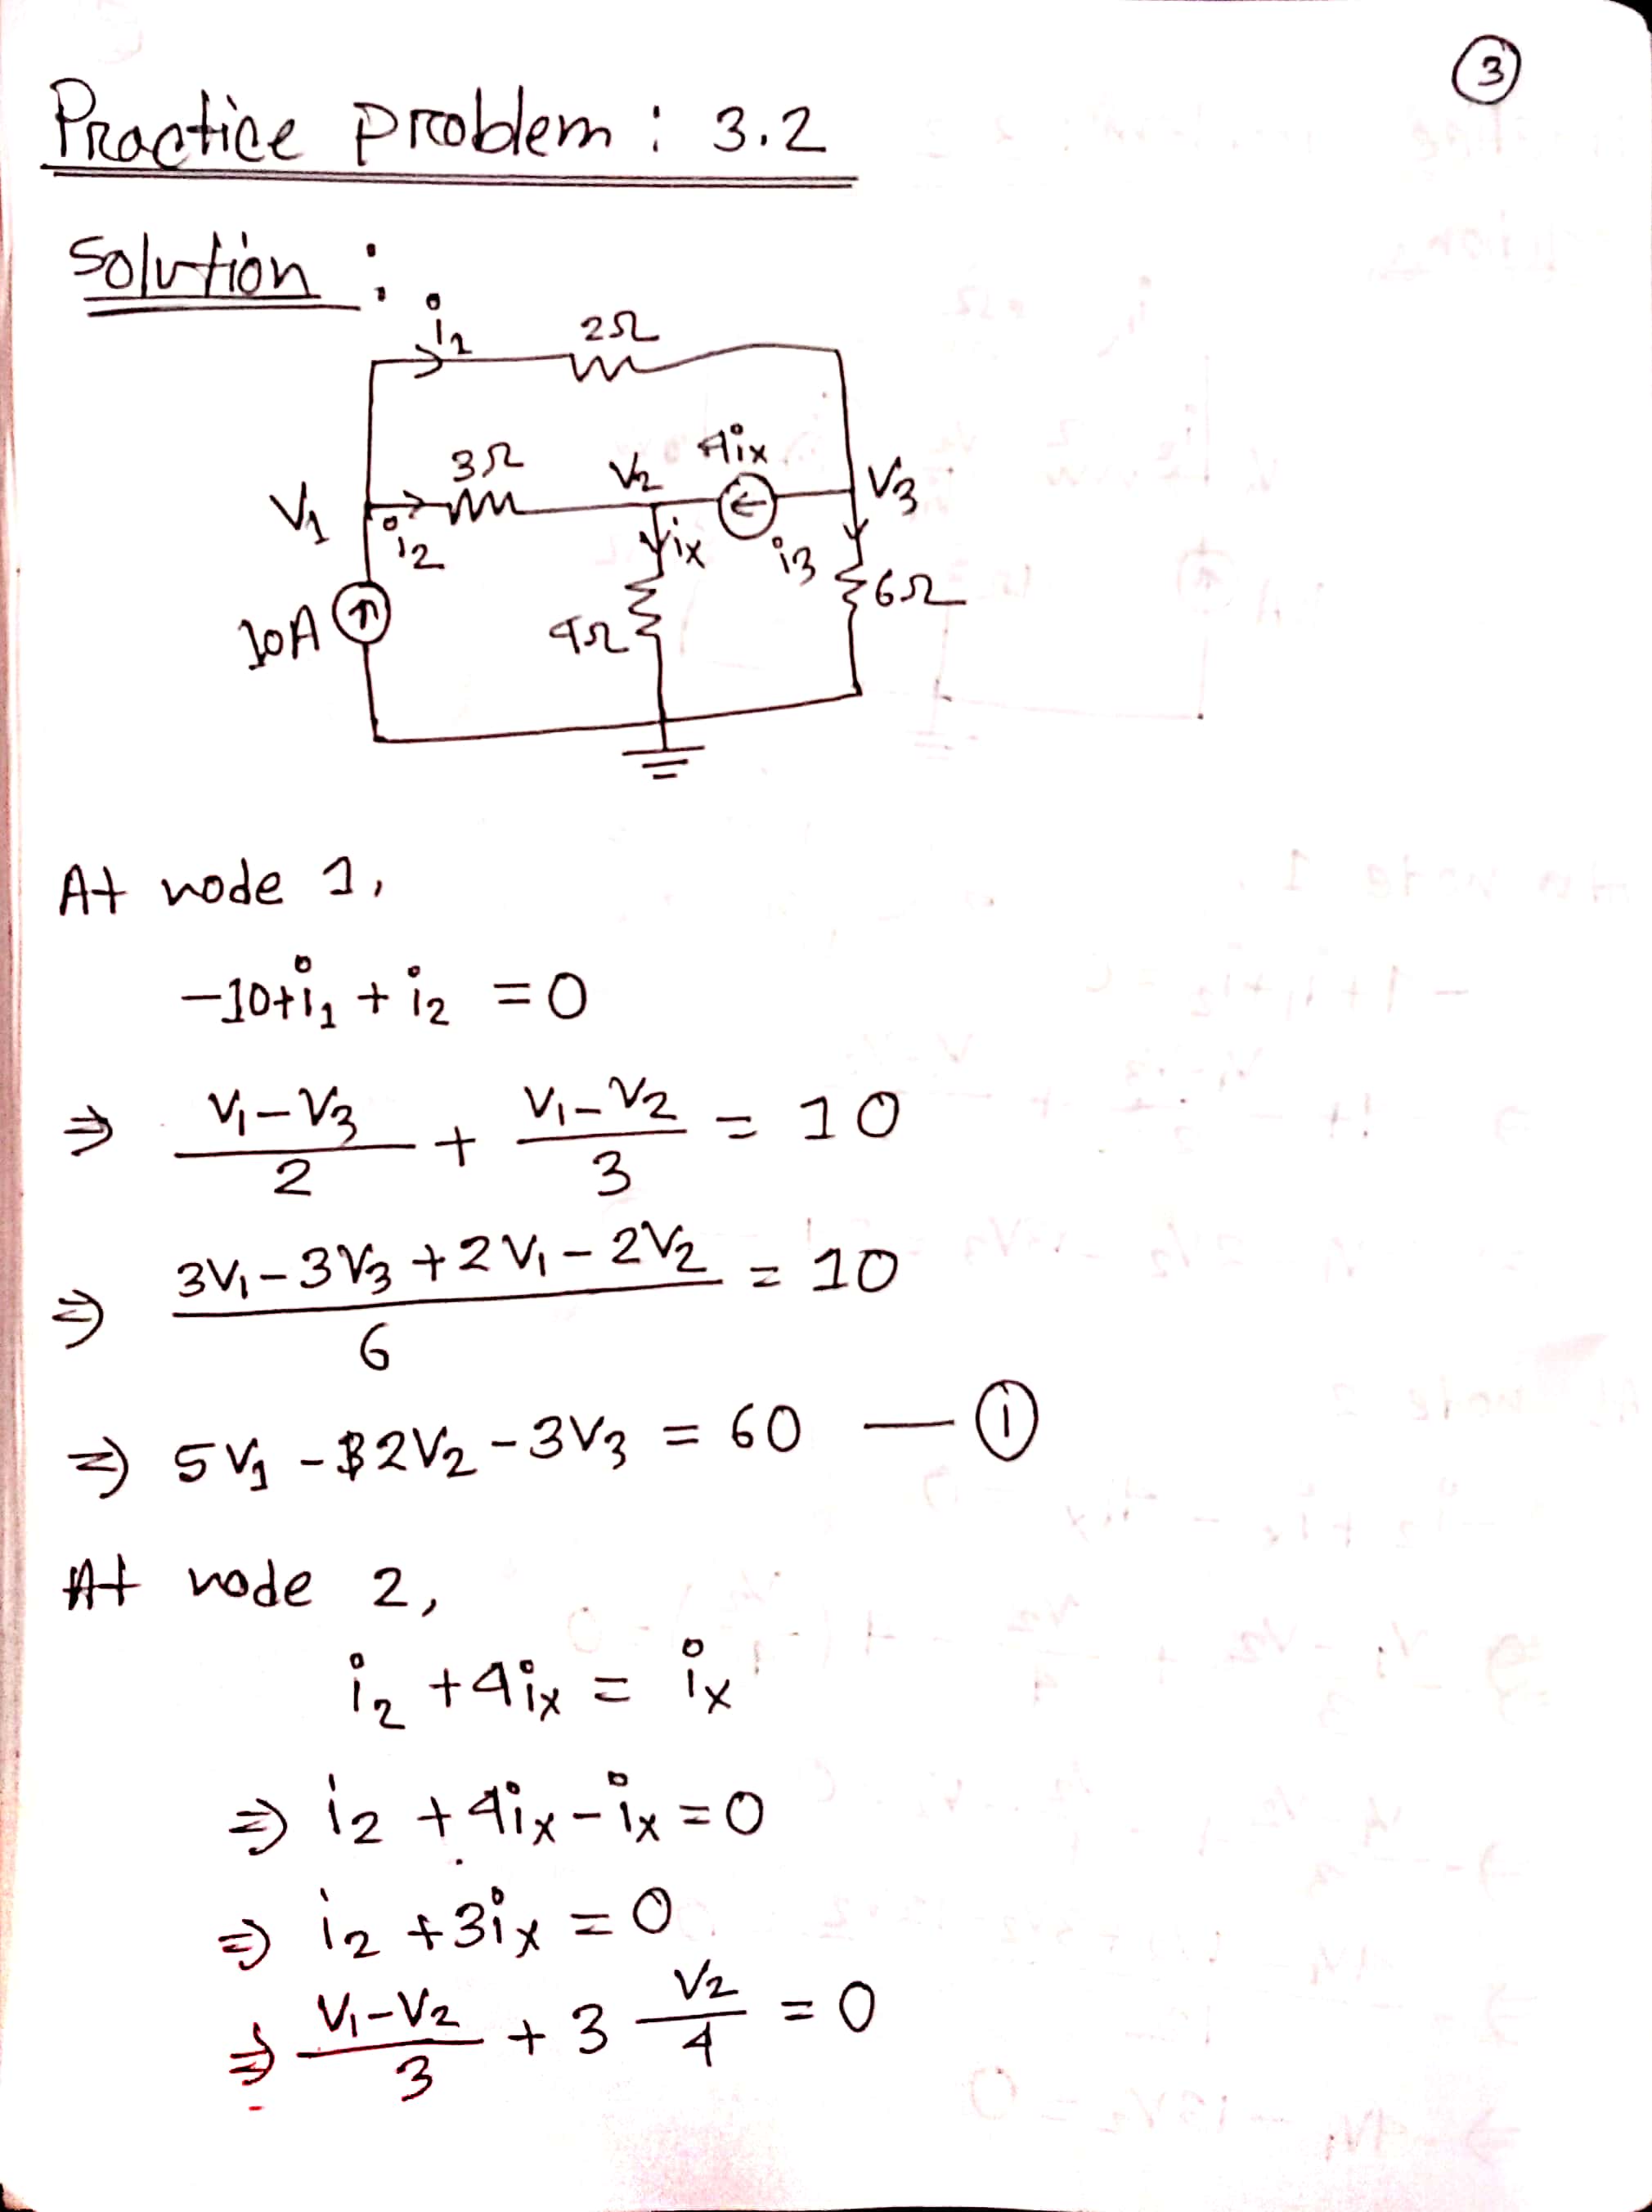 3
Practice problem : 3.2
Solution :
i₁ 2Ω
3Ω V₂ 4ix
V₁ i₂ ix i3 V₃
10A 4Ω 6Ω
At node 1,
-10+i₁ + i₂ = 0
⇒ (V₁-V₃)/2 + (V₁-V₂)/3 = 10
⇒ (3V₁-3V₃+2V₁-2V₂)/6 = 10
⇒ 5V₁ - 2V₂ - 3V₃ = 60 — ①
At node 2,
i₂ + 4ix = ix
⇒ i₂ + 4ix - ix = 0
⇒ i₂ + 3ix = 0
⇒ (V₁-V₂)/3 + 3 V₂/4 = 0